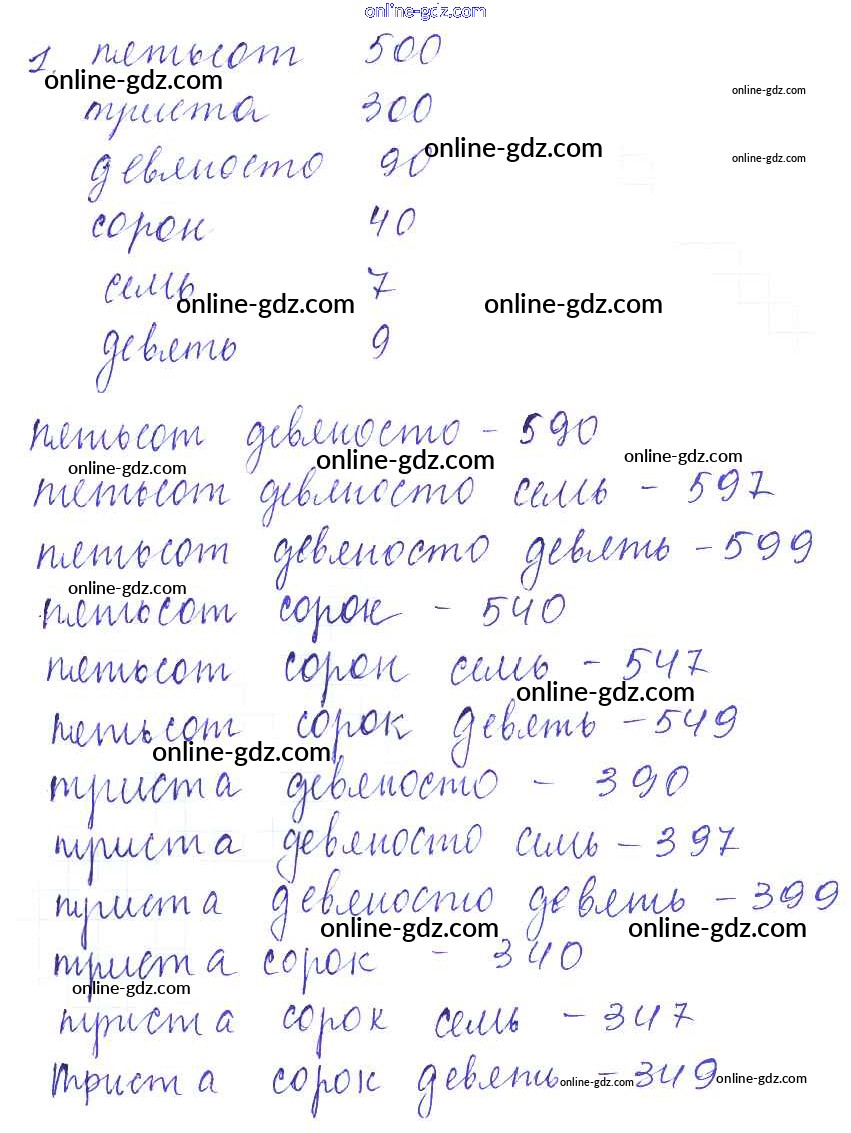 online-gdz.com
1. пятьсот 500
online-gdz.com
online-gdz.com
триста 300
online-gdz.com
online-gdz.com
девяносто 90
сорок 40
семь 7
online-gdz.com online-gdz.com
девять 9
пятьсот девяносто - 590
online-gdz.com online-gdz.com online-gdz.com
пятьсот девяносто семь - 597
пятьсот девяносто девять - 599
online-gdz.com
пятьсот сорок - 540
пятьсот сорок семь - 547
online-gdz.com
пятьсот сорок девять - 549
online-gdz.com
триста девяносто - 390
триста девяносто семь - 397
триста девяносто девять - 399
online-gdz.com online-gdz.com
триста сорок - 340
online-gdz.com
триста сорок семь - 347
триста сорок девять - 349
online-gdz.com online-gdz.com